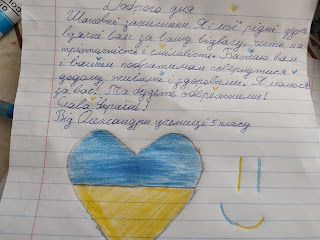 Доброго дня
Шановні захисники. Я і мої рідні дуже
вдячні вам за вашу відвагу, честь на
і сміливість. Бажаю вам
і вашим побратимам повернутися
додому живими і здоровими. Я молюся
за вас! Та будьте обережними!
Слава Україні!
Від Олександри учениці 5 класу